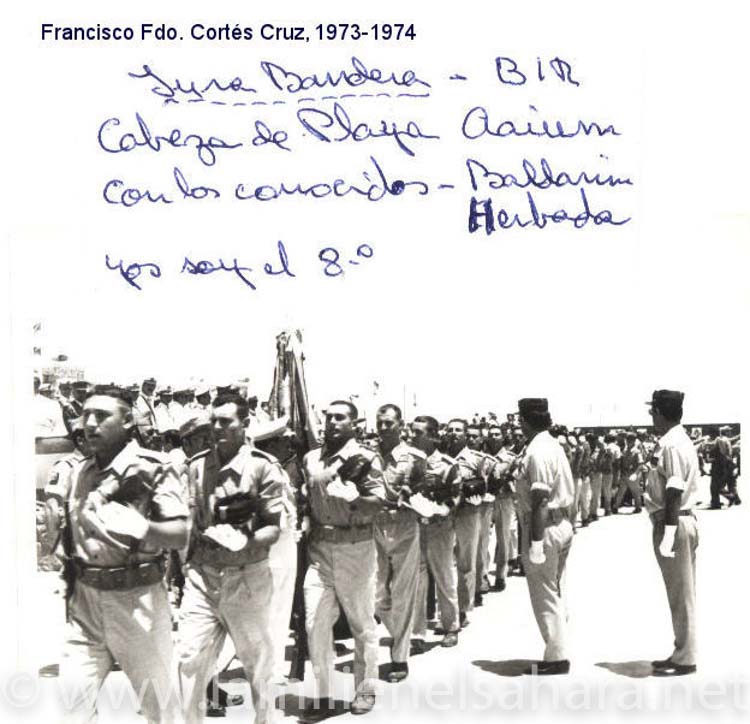 Francisco Fdo. Cortés Cruz, 1973-1974
Jura Bandera - BIR
Cabeza de Playa Aaium
Con los conocidos - Baldarim
Herbada
yos soy el 8.º
© www.lamilienelsahara.net